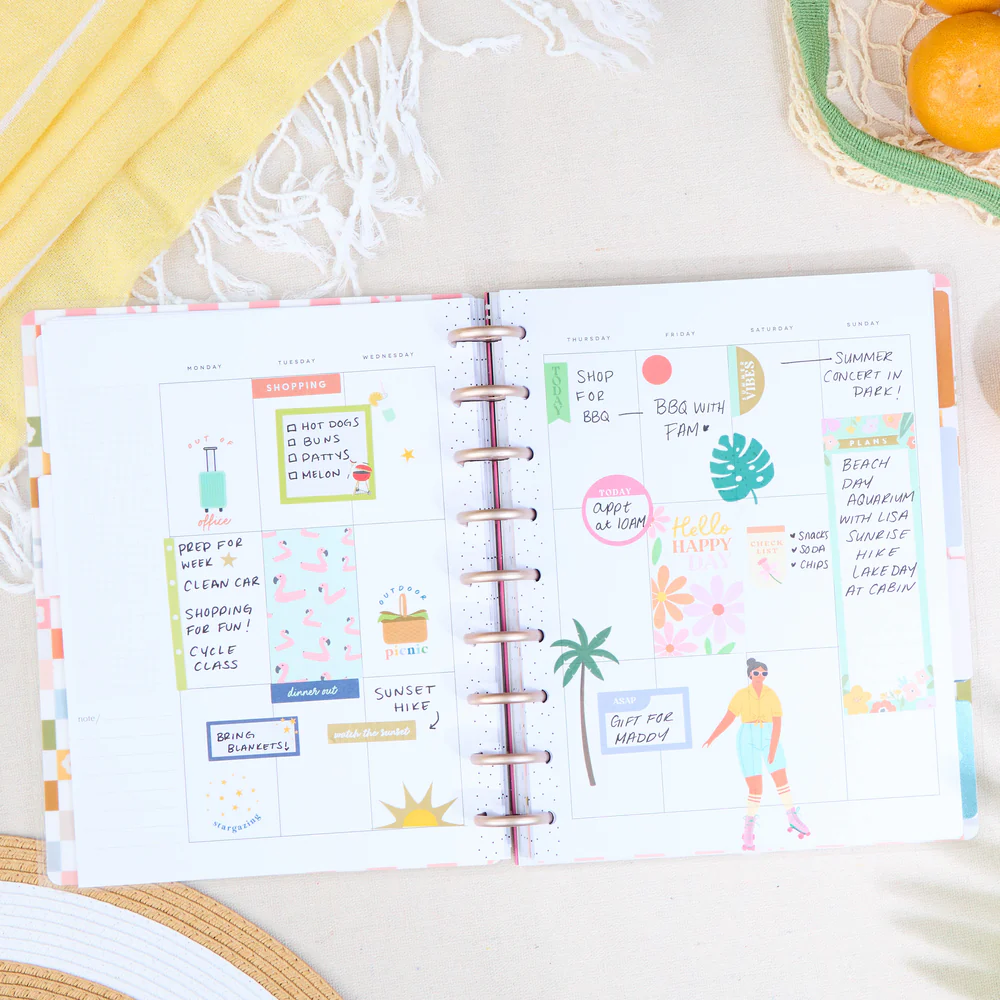 MONDAY
TUESDAY
WEDNESDAY
SHOPPING
OUT OF
office
HOT DOGS
BUNS
PATTYS
MELON
PREP FOR
WEEK
CLEAN CAR
SHOPPING
FOR FUN!
CYCLE
CLASS
dinner out
OUTDOOR
picnic
note/
BRING
BLANKETS!
SUNSET
HIKE
watch the sunset
stargazing
THURSDAY
FRIDAY
SATURDAY
SUNDAY
TODAY
SHOP
FOR
BBQ
BBQ WITH
FAM
VIBES
SUMMER
CONCERT IN
DARK!
TODAY
appt
at 10AM
Hello
HAPPY
DAY
CHECK
LIST
SNACKS
SODA
CHIPS
PLANS
BEACH
DAY
AQUARIUM
WITH LISA
SUNRISE
HIKE
LAKE DAY
AT CABIN
ASAP
GIFT FOR
MADDY